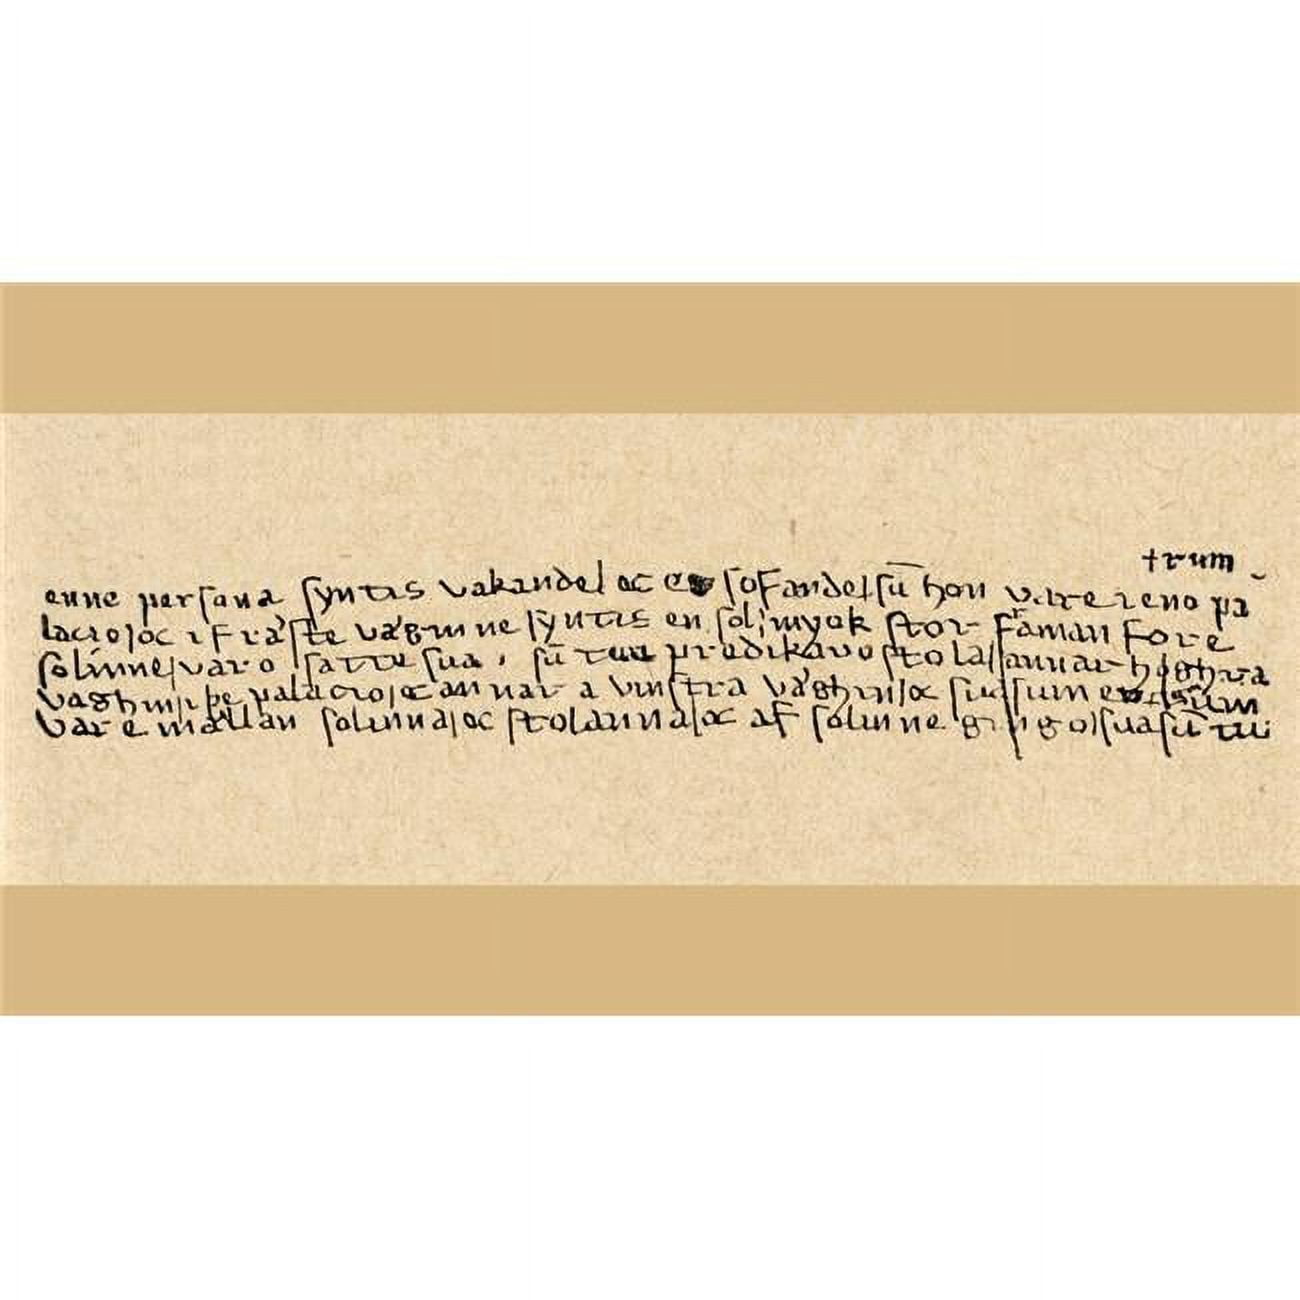 trum
enne persona syntis vakande oc ey sofande sū hon vare i eno pa
lacio oc i fraste vaghinne syntis en sol myok stor framan fore
solinne varo satte sua sū tua predikaro stola annar høghra
vaghin i þe palacio oc annar a vinstra vaghin oc
vare mällan solinna oc stolanna oc af solinne sua sū